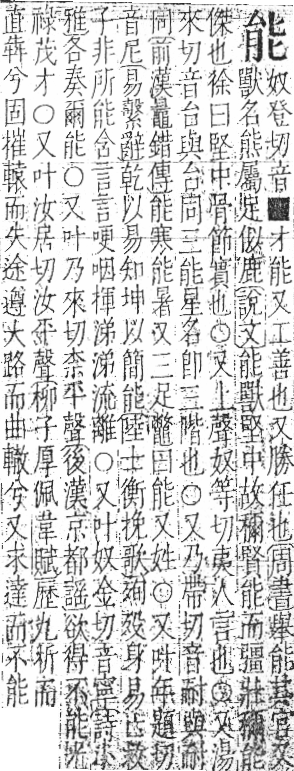 能 奴登切音■才能又工善也又勝任也周書舉能其官又
獸名熊屬足似鹿說文能獸堅中故稱賢能而彊壯稱能
傑也徐曰堅中骨節實也○又上聲奴等切夷人言也○又湯
來切音台與台同三能星名卽三階也○又乃帶切音耐與耐
同前漢鼂錯傳能寒能暑又三足鼈曰能又姓○又叶年題切
音尼易繫辭乾以易知坤以簡能陸士衡挽歌殉歿身易亡救
子非所能含言言哽咽揮涕涕流離○又叶奴金切音寧詩
雅各奏爾能○又叶乃來切柰平聲後漢京都謠欲得不能光
祿茂才○又叶汝居切汝平聲柳子厚佩韋賦歷九折而
直犇兮固摧轅而失途遵大路而曲轍兮又求達而不能